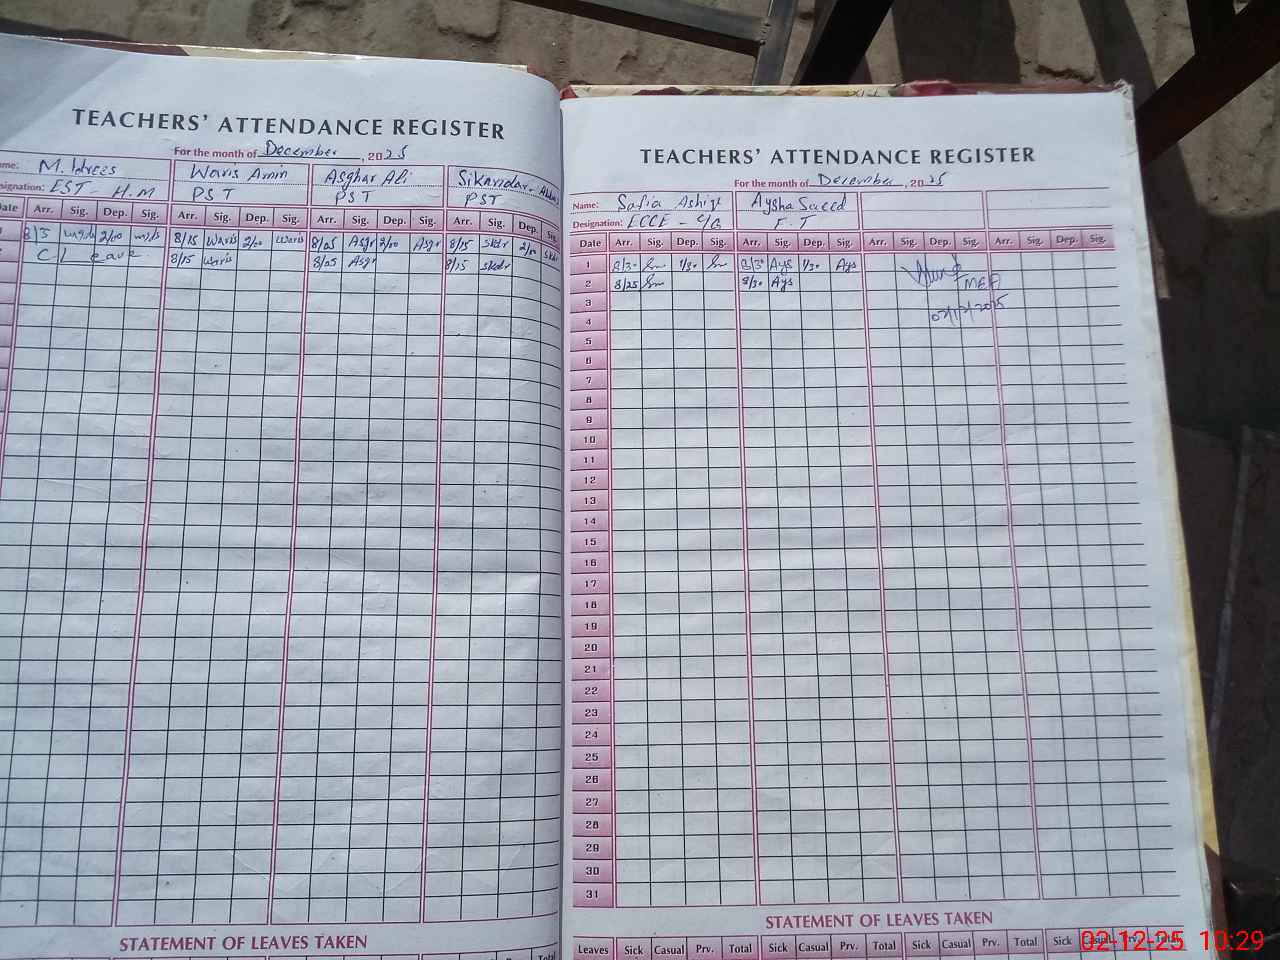 TEACHERS' ATTENDANCE REGISTER
For the month of December, 2025
me: M. Idrees Waris Amin Asghar Ali Sikandar
signation: EST - H.M PST PST PST
Date Arr. Sig. Dep. Sig. Arr. Sig. Dep. Sig. Arr. Sig. Dep. Sig. Arr. Sig. Dep. Sig.
8/15 2/00 8/15 Waris 2/00 Waris 8/05 Asgr 2/00 Asgr 8/15 Skdr 2/00 Skdr
C Leave 8/15 Waris 8/05 Asgr 8/15 Skdr
STATEMENT OF LEAVES TAKEN
TEACHERS' ATTENDANCE REGISTER
For the month of December, 2025
Name: Safia Ashiq Aysha Saeed
Designation: ECCE - C/G F.T
Date Arr. Sig. Dep. Sig. Arr. Sig. Dep. Sig. Arr. Sig. Dep. Sig. Arr. Sig. Dep. Sig.
1 8/30 1/30 8/30 Ays 1/30 Ays
2 8/25 8/30 Ays MEA
3
4 02/12/2025
5
6
7
8
9
10
11
12
13
14
15
16
17
18
19
20
21
22
23
24
25
26
27
28
29
30
31
STATEMENT OF LEAVES TAKEN
Leaves Sick Casual Prv. Total Sick Casual Prv. Total Sick Casual Prv. Total Sick Casual Prv. Total
02-12-25 10:29